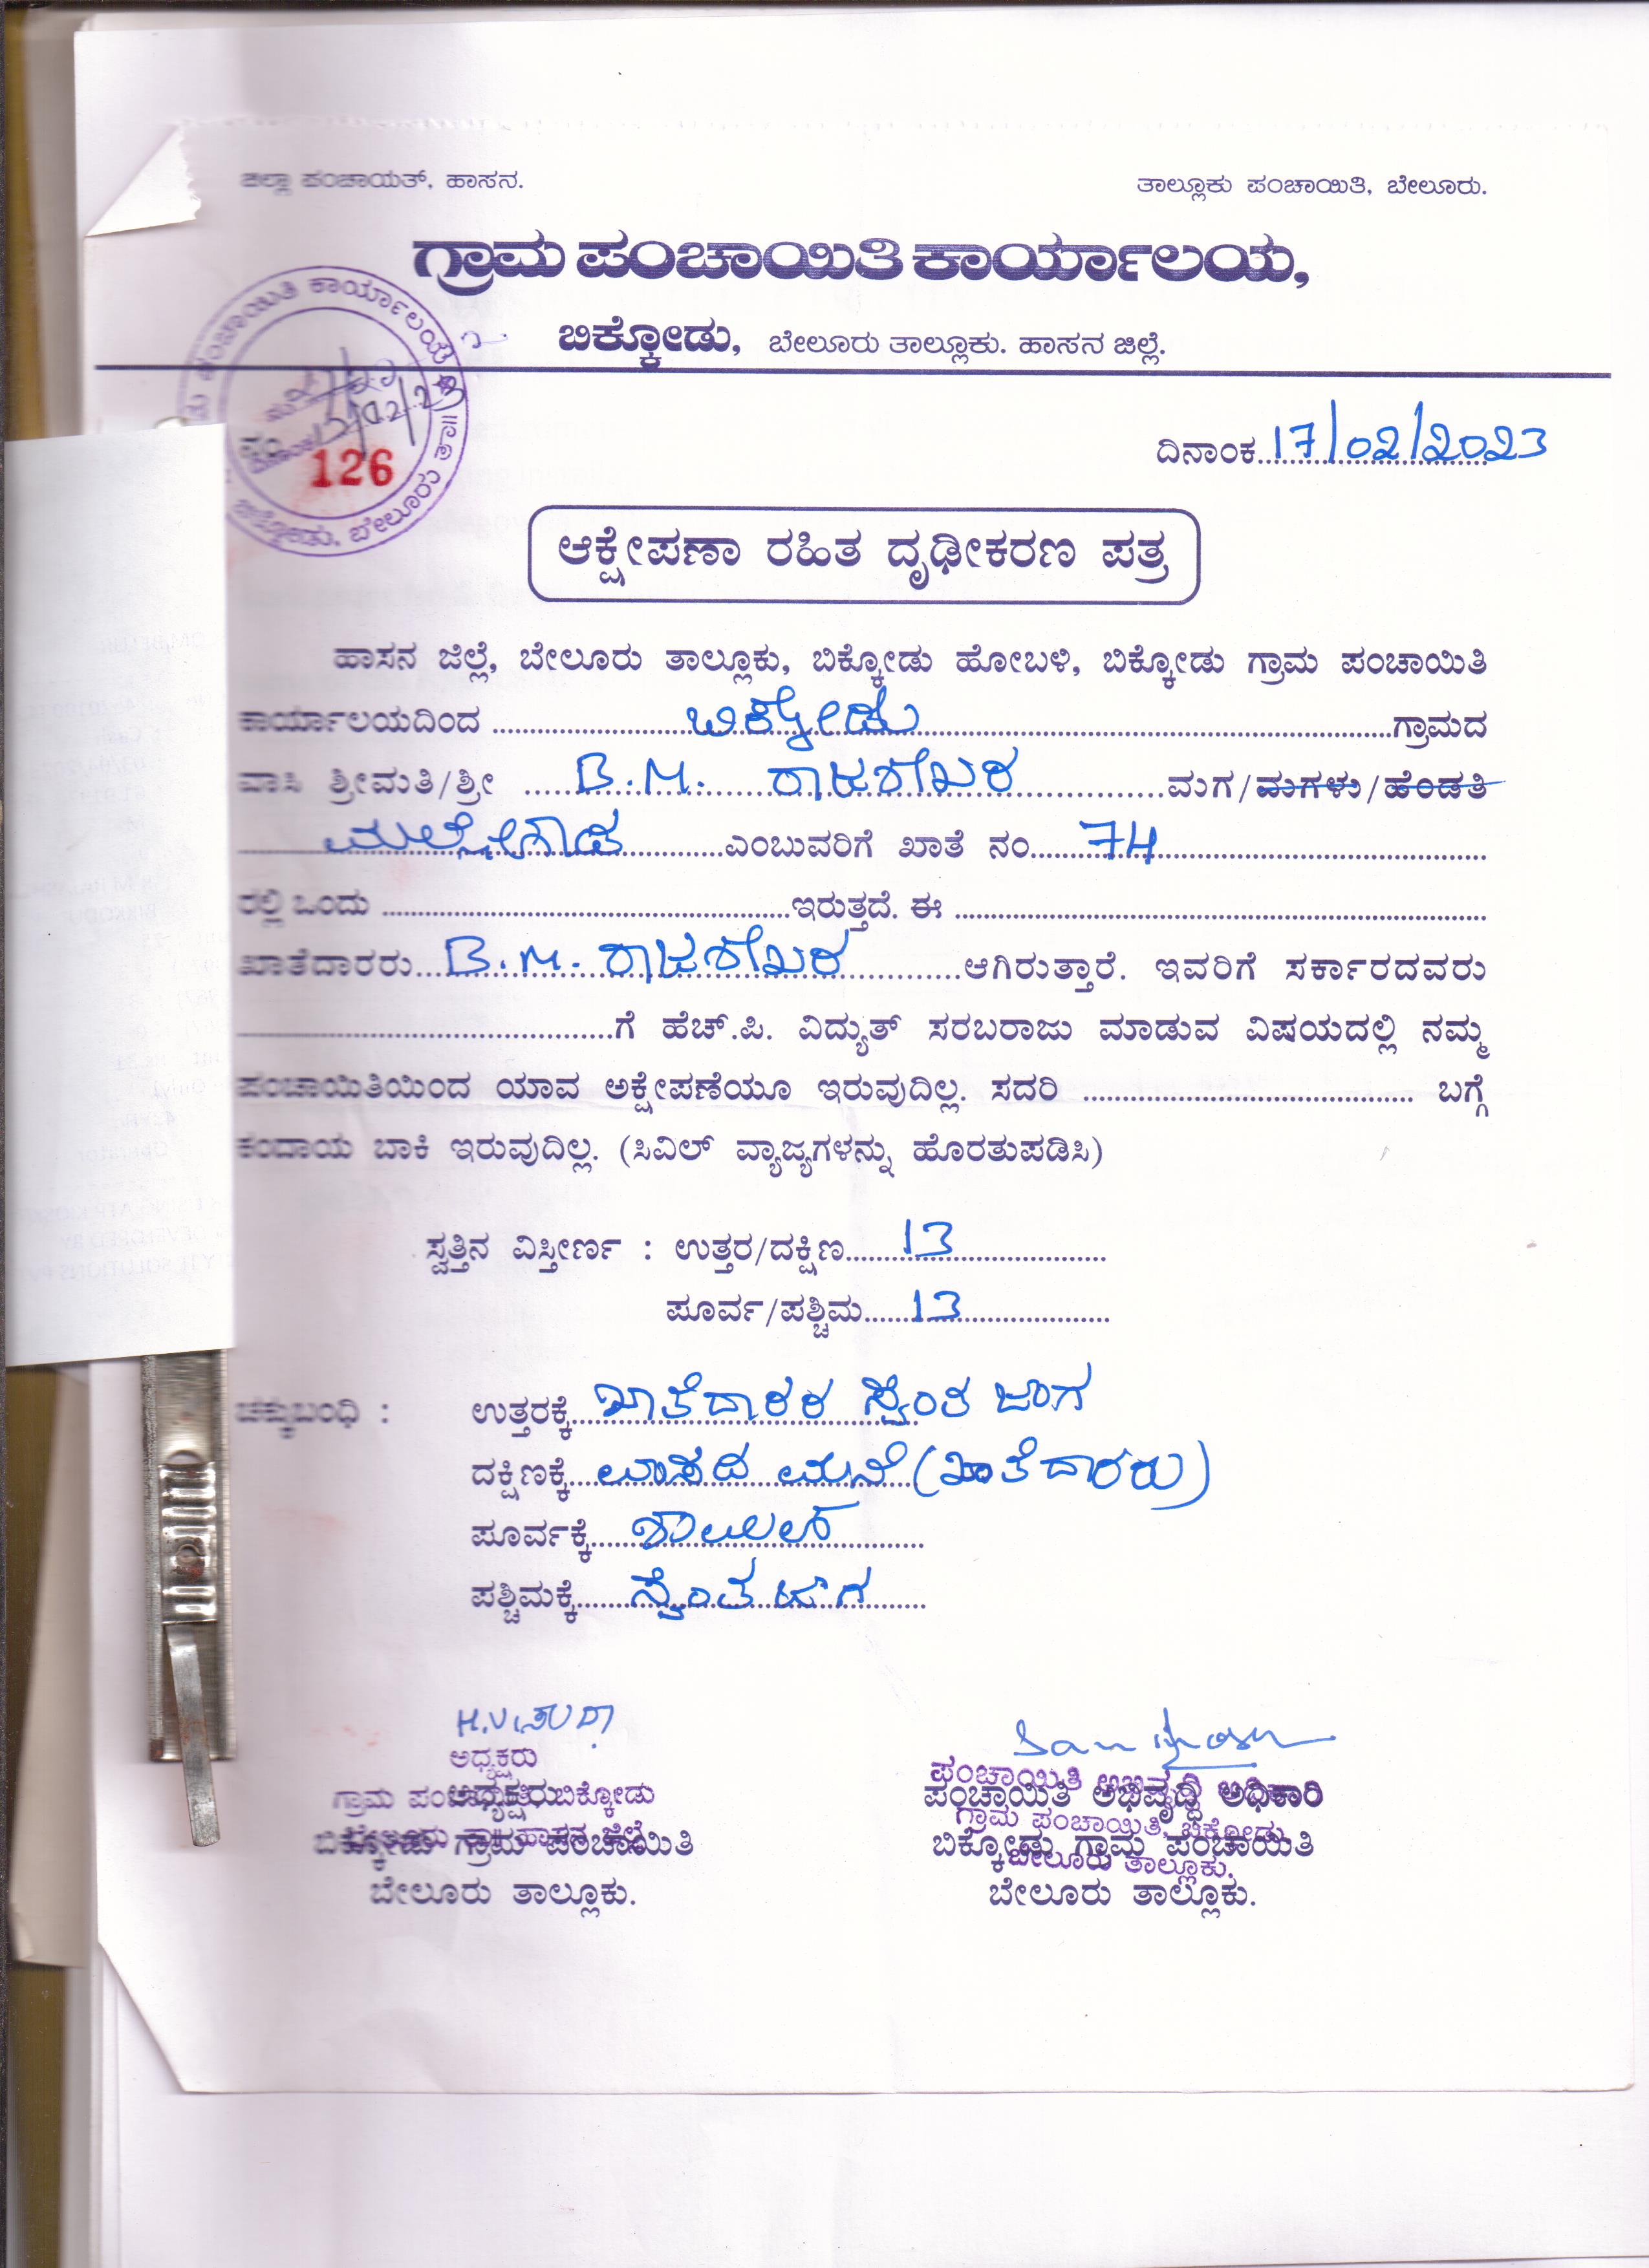 ಜಿಲ್ಲಾ ಪಂಚಾಯತ್, ಹಾಸನ.
ತಾಲ್ಲೂಕು ಪಂಚಾಯಿತಿ, ಬೇಲೂರು.
ಗ್ರಾಮ ಪಂಚಾಯಿತಿ ಕಾರ್ಯಾಲಯ,
ಬಿಕ್ಕೋಡು, ಬೇಲೂರು ತಾಲ್ಲೂಕು. ಹಾಸನ ಜಿಲ್ಲೆ.
ನಂ. 126
ದಿನಾಂಕ 17/02/2023
ಆಕ್ಷೇಪಣಾ ರಹಿತ ದೃಢೀಕರಣ ಪತ್ರ
ಹಾಸನ ಜಿಲ್ಲೆ, ಬೇಲೂರು ತಾಲ್ಲೂಕು, ಬಿಕ್ಕೋಡು ಹೋಬಳಿ, ಬಿಕ್ಕೋಡು ಗ್ರಾಮ ಪಂಚಾಯಿತಿ
ಕಾರ್ಯಾಲಯದಿಂದ ಬಿಕ್ಕೋಡು ಗ್ರಾಮದ
ವಾಸಿ ಶ್ರೀಮತಿ/ಶ್ರೀ B.M. ರಾಜಶೇಖರ ಮಗ/ಮಗಳು/ಹೆಂಡತಿ
ಮಲ್ಲೇಗೌಡ ಎಂಬುವರಿಗೆ ಖಾತೆ ನಂ. 74
ರಲ್ಲಿ ಒಂದು ಇರುತ್ತದೆ. ಈ
ಖಾತೆದಾರರು B.M. ರಾಜಶೇಖರ ಆಗಿರುತ್ತಾರೆ. ಇವರಿಗೆ ಸರ್ಕಾರದವರು
ಗೆ ಹೆಚ್.ಪಿ. ವಿದ್ಯುತ್ ಸರಬರಾಜು ಮಾಡುವ ವಿಷಯದಲ್ಲಿ ನಮ್ಮ
ಪಂಚಾಯಿತಿಯಿಂದ ಯಾವ ಅಕ್ಷೇಪಣೆಯೂ ಇರುವುದಿಲ್ಲ. ಸದರಿ ಬಗ್ಗೆ
ಕಂದಾಯ ಬಾಕಿ ಇರುವುದಿಲ್ಲ. (ಸಿವಿಲ್ ವ್ಯಾಜ್ಯಗಳನ್ನು ಹೊರತುಪಡಿಸಿ)
ಸ್ವತ್ತಿನ ವಿಸ್ತೀರ್ಣ : ಉತ್ತರ/ದಕ್ಷಿಣ 13
ಪೂರ್ವ/ಪಶ್ಚಿಮ 13
ಚಕ್ಕುಬಂಧಿ : ಉತ್ತರಕ್ಕೆ ಖಾತೆದಾರರ ಸ್ವಂತ ಜಾಗ
ದಕ್ಷಿಣಕ್ಕೆ ವಾಸದ ಮನೆ (ಖಾತೆದಾರರು)
ಪೂರ್ವಕ್ಕೆ
ಪಶ್ಚಿಮಕ್ಕೆ ಸ್ವಂತ ಜಾಗ
ಅಧ್ಯಕ್ಷರು
ಗ್ರಾಮ ಪಂಚಾಯಿತಿ ಬಿಕ್ಕೋಡು
ಬೇಲೂರು ತಾ|| ಹಾಸನ ಜಿಲ್ಲೆ
ಅಧ್ಯಕ್ಷರು
ಬಿಕ್ಕೋಡು ಗ್ರಾಮ ಪಂಚಾಯಿತಿ
ಬೇಲೂರು ತಾಲ್ಲೂಕು.
ಪಂಚಾಯಿತಿ ಅಭಿವೃದ್ಧಿ ಅಧಿಕಾರಿ
ಗ್ರಾಮ ಪಂಚಾಯಿತಿ, ಬಿಕ್ಕೋಡು
ಬೇಲೂರು ತಾಲ್ಲೂಕು.
ಪಂಚಾಯಿತಿ ಅಭಿವೃದ್ಧಿ ಅಧಿಕಾರಿ
ಬಿಕ್ಕೋಡು ಗ್ರಾಮ ಪಂಚಾಯಿತಿ
ಬೇಲೂರು ತಾಲ್ಲೂಕು.